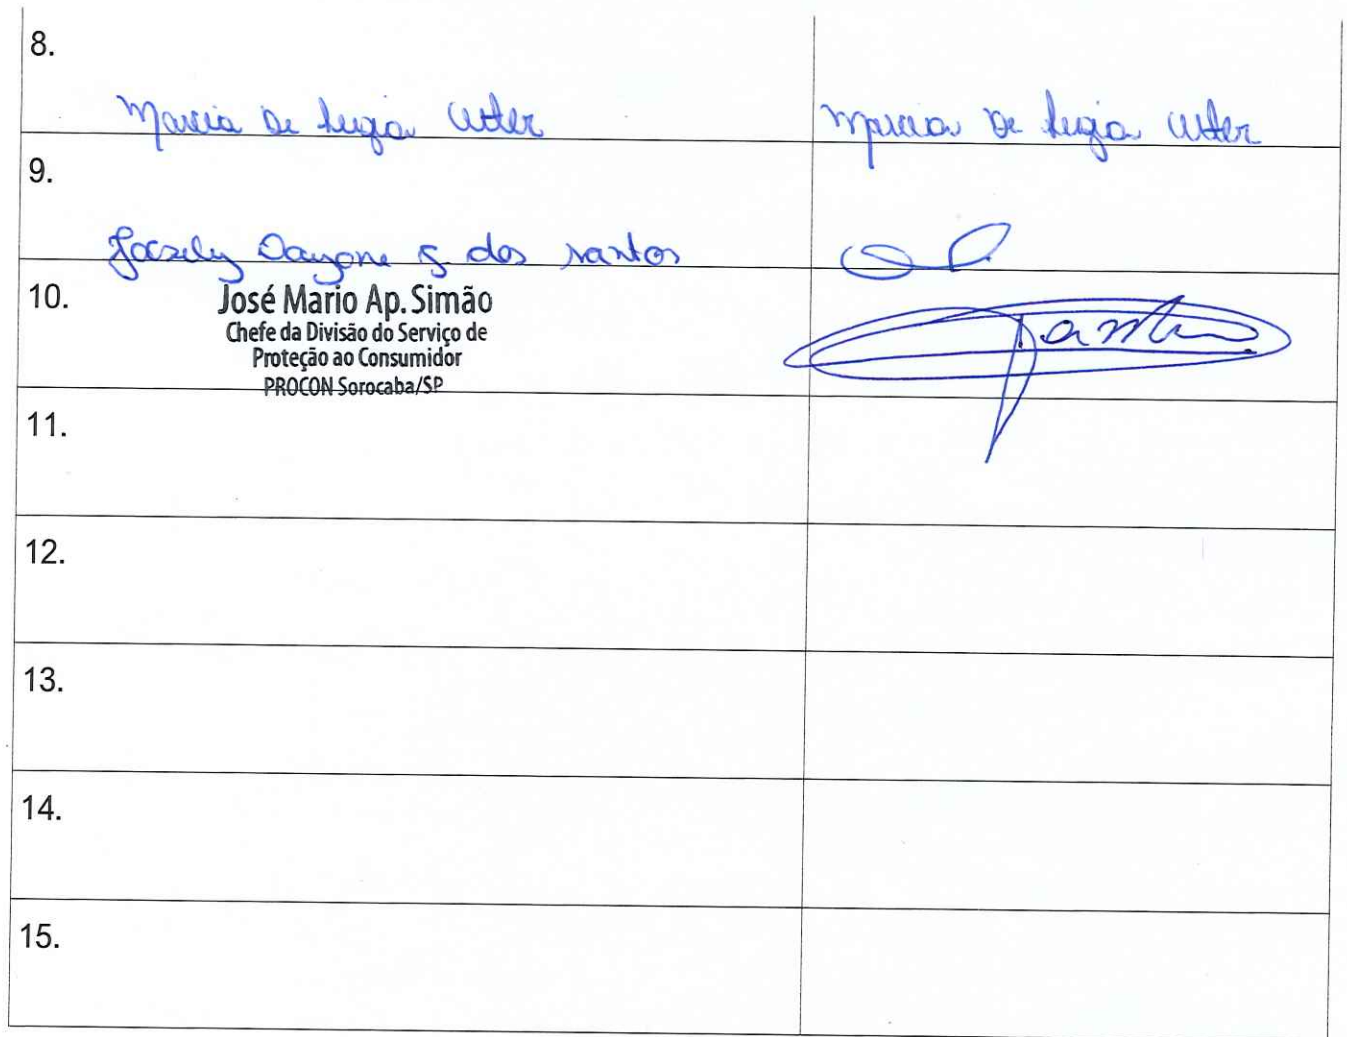 8.
Marcia De Lugia
Marcia De Lugia
9.
Dayane S dos santos
10.
José Mario Ap. Simão
Chefe da Divisão do Serviço de
Proteção ao Consumidor
PROCON Sorocaba/SP
11.
12.
13.
14.
15.